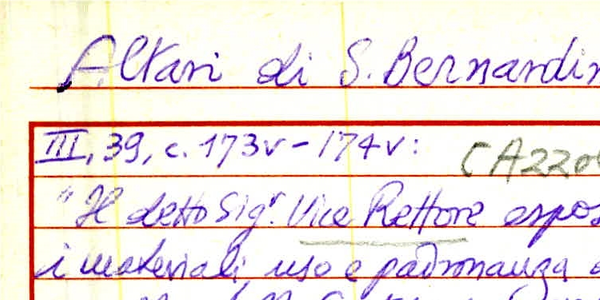 Altari di S. Bernardin
III, 39, c. 173v - 174v:
"Il detto Sigr. Vice Rettore espos
i materiali, uso e padronanza